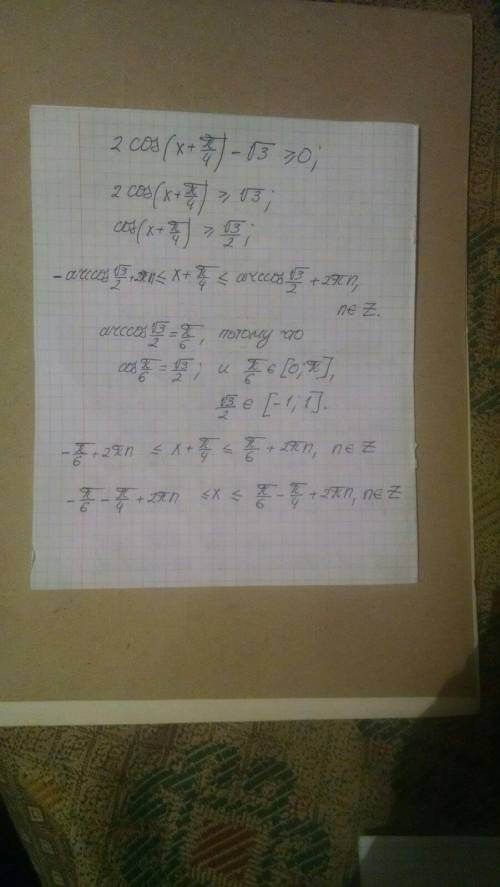 2 cos(x + π/4) - √3 ≥ 0;
2 cos(x + π/4) ≥ √3;
cos(x + π/4) ≥ √3/2;
- arccos √3/2 + 2πn ≤ x + π/4 ≤ arccos √3/2 + 2πn,
n ∈ Z.
arccos √3/2 = π/6, потому что
cos π/6 = √3/2; и π/6 ∈ [0; π],
√3/2 ∈ [-1; 1].
- π/6 + 2πn ≤ x + π/4 ≤ π/6 + 2πn, n ∈ Z
- π/6 - π/4 + 2πn ≤ x ≤ π/6 - π/4 + 2πn, n ∈ Z